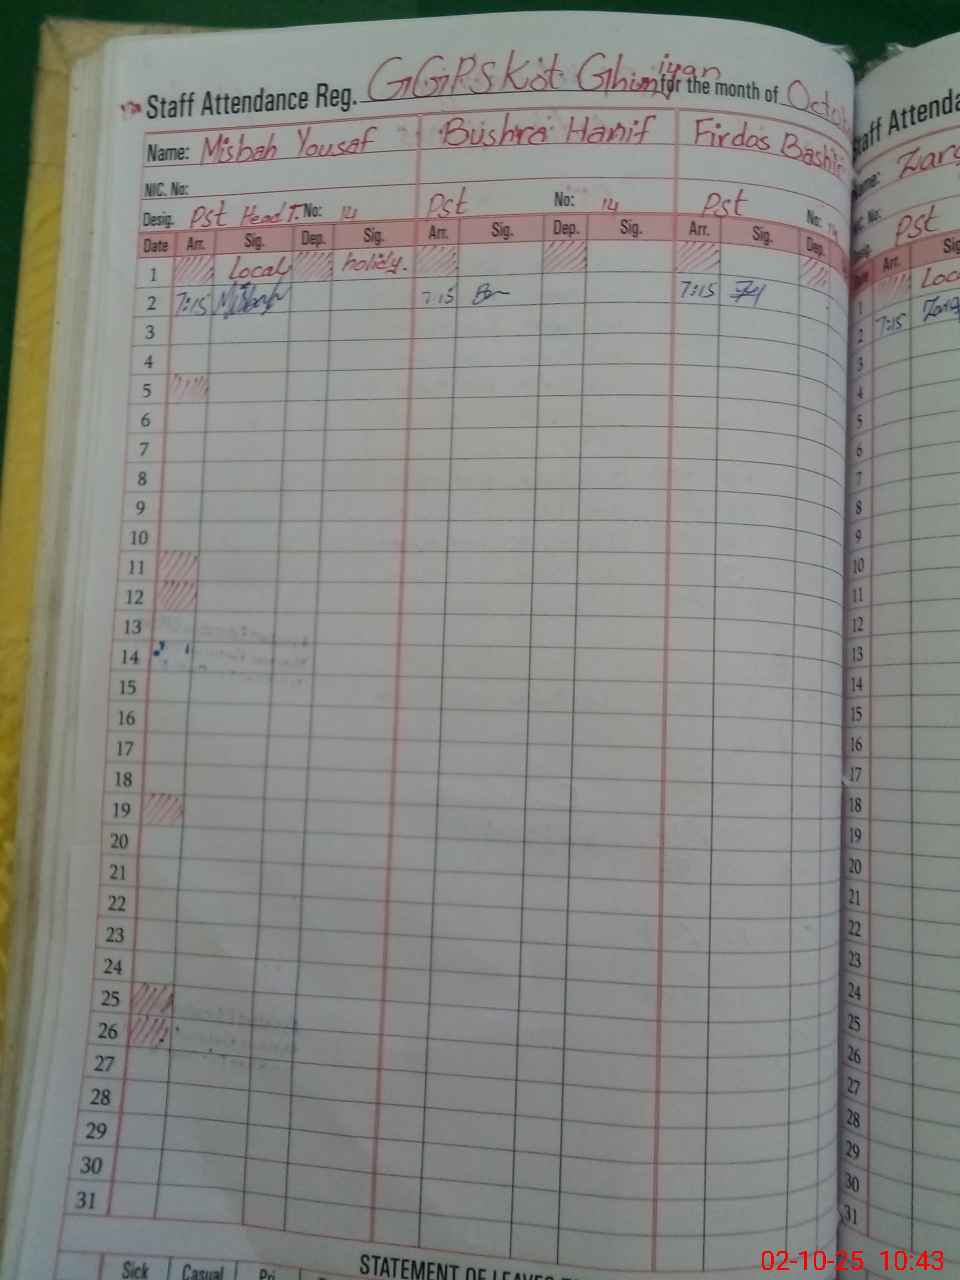 Staff Attendance Reg. GGPS Kot Ghimiyan for the month of Octob
Name: Misbah Yousaf Bushra Hanif Firdos Bashir
NIC. No:
Desig. Pst Head T. No: 14 Pst No: 14 Pst No: 14
Date Arr. Sig. Dep. Sig. Arr. Sig. Dep. Sig. Arr. Sig. Dep.
1 Local holidy.
2 7:15 Misbah 7:15 7:15
3
4
5
6
7
8
9
10
11
12
13
14
15
16
17
18
19
20
21
22
23
24
25
26
27
28
29
30
31
STATEMENT OF LEAVES
Sick Casual Pri
taff Attenda
ame: Zar
IC. No:
esig. Pst
Arr. Sig
1 Loc
2 7:15
3
4
5
6
7
8
9
10
11
12
13
14
15
16
17
18
19
20
21
22
23
24
25
26
27
28
29
30
31
02-10-25 10:43